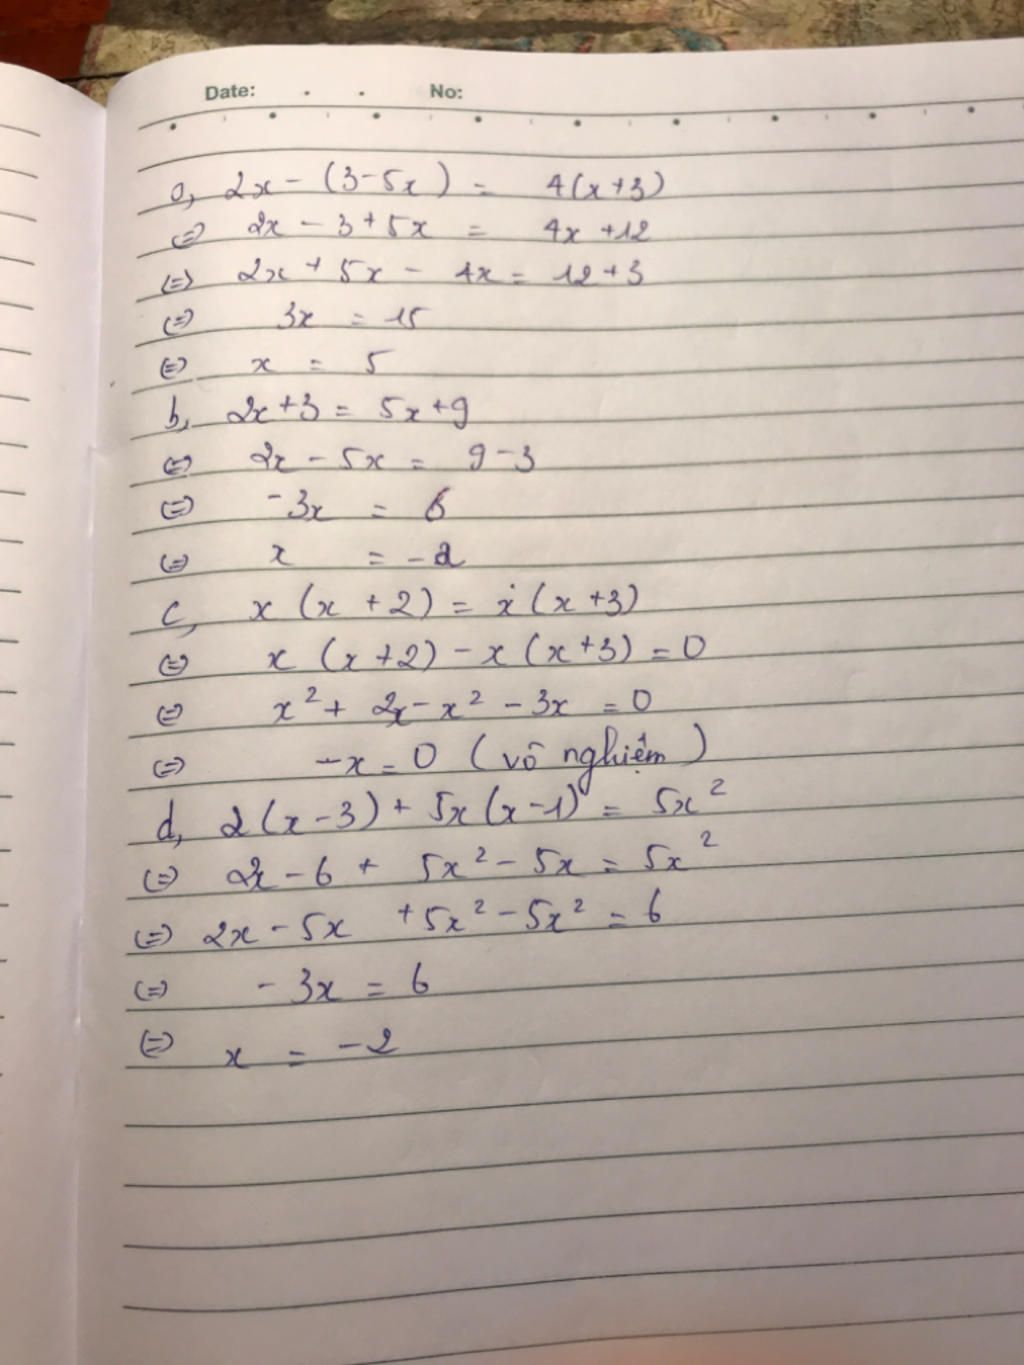 Date: . . No:
a, 2x - (3-5x) = 4(x+3)
(=) 2x - 3 + 5x = 4x + 12
(=) 2x + 5x - 4x = 12 + 3
(=) 3x = 15
(=) x = 5
b, 2x+3 = 5x+9
(=) 2x - 5x = 9 - 3
(=) - 3x = 6
(=) x = - 2
c, x (x + 2) = x (x + 3)
(=) x (x + 2) - x (x + 3) = 0
(=) x² + 2x - x² - 3x = 0
(=) -x = 0 (vô nghiệm)
d, 2(x - 3) + 5x (x - 1) = 5x²
(=) 2x - 6 + 5x² - 5x = 5x²
(=) 2x - 5x + 5x² - 5x² = 6
(=) - 3x = 6
(=) x = - 2